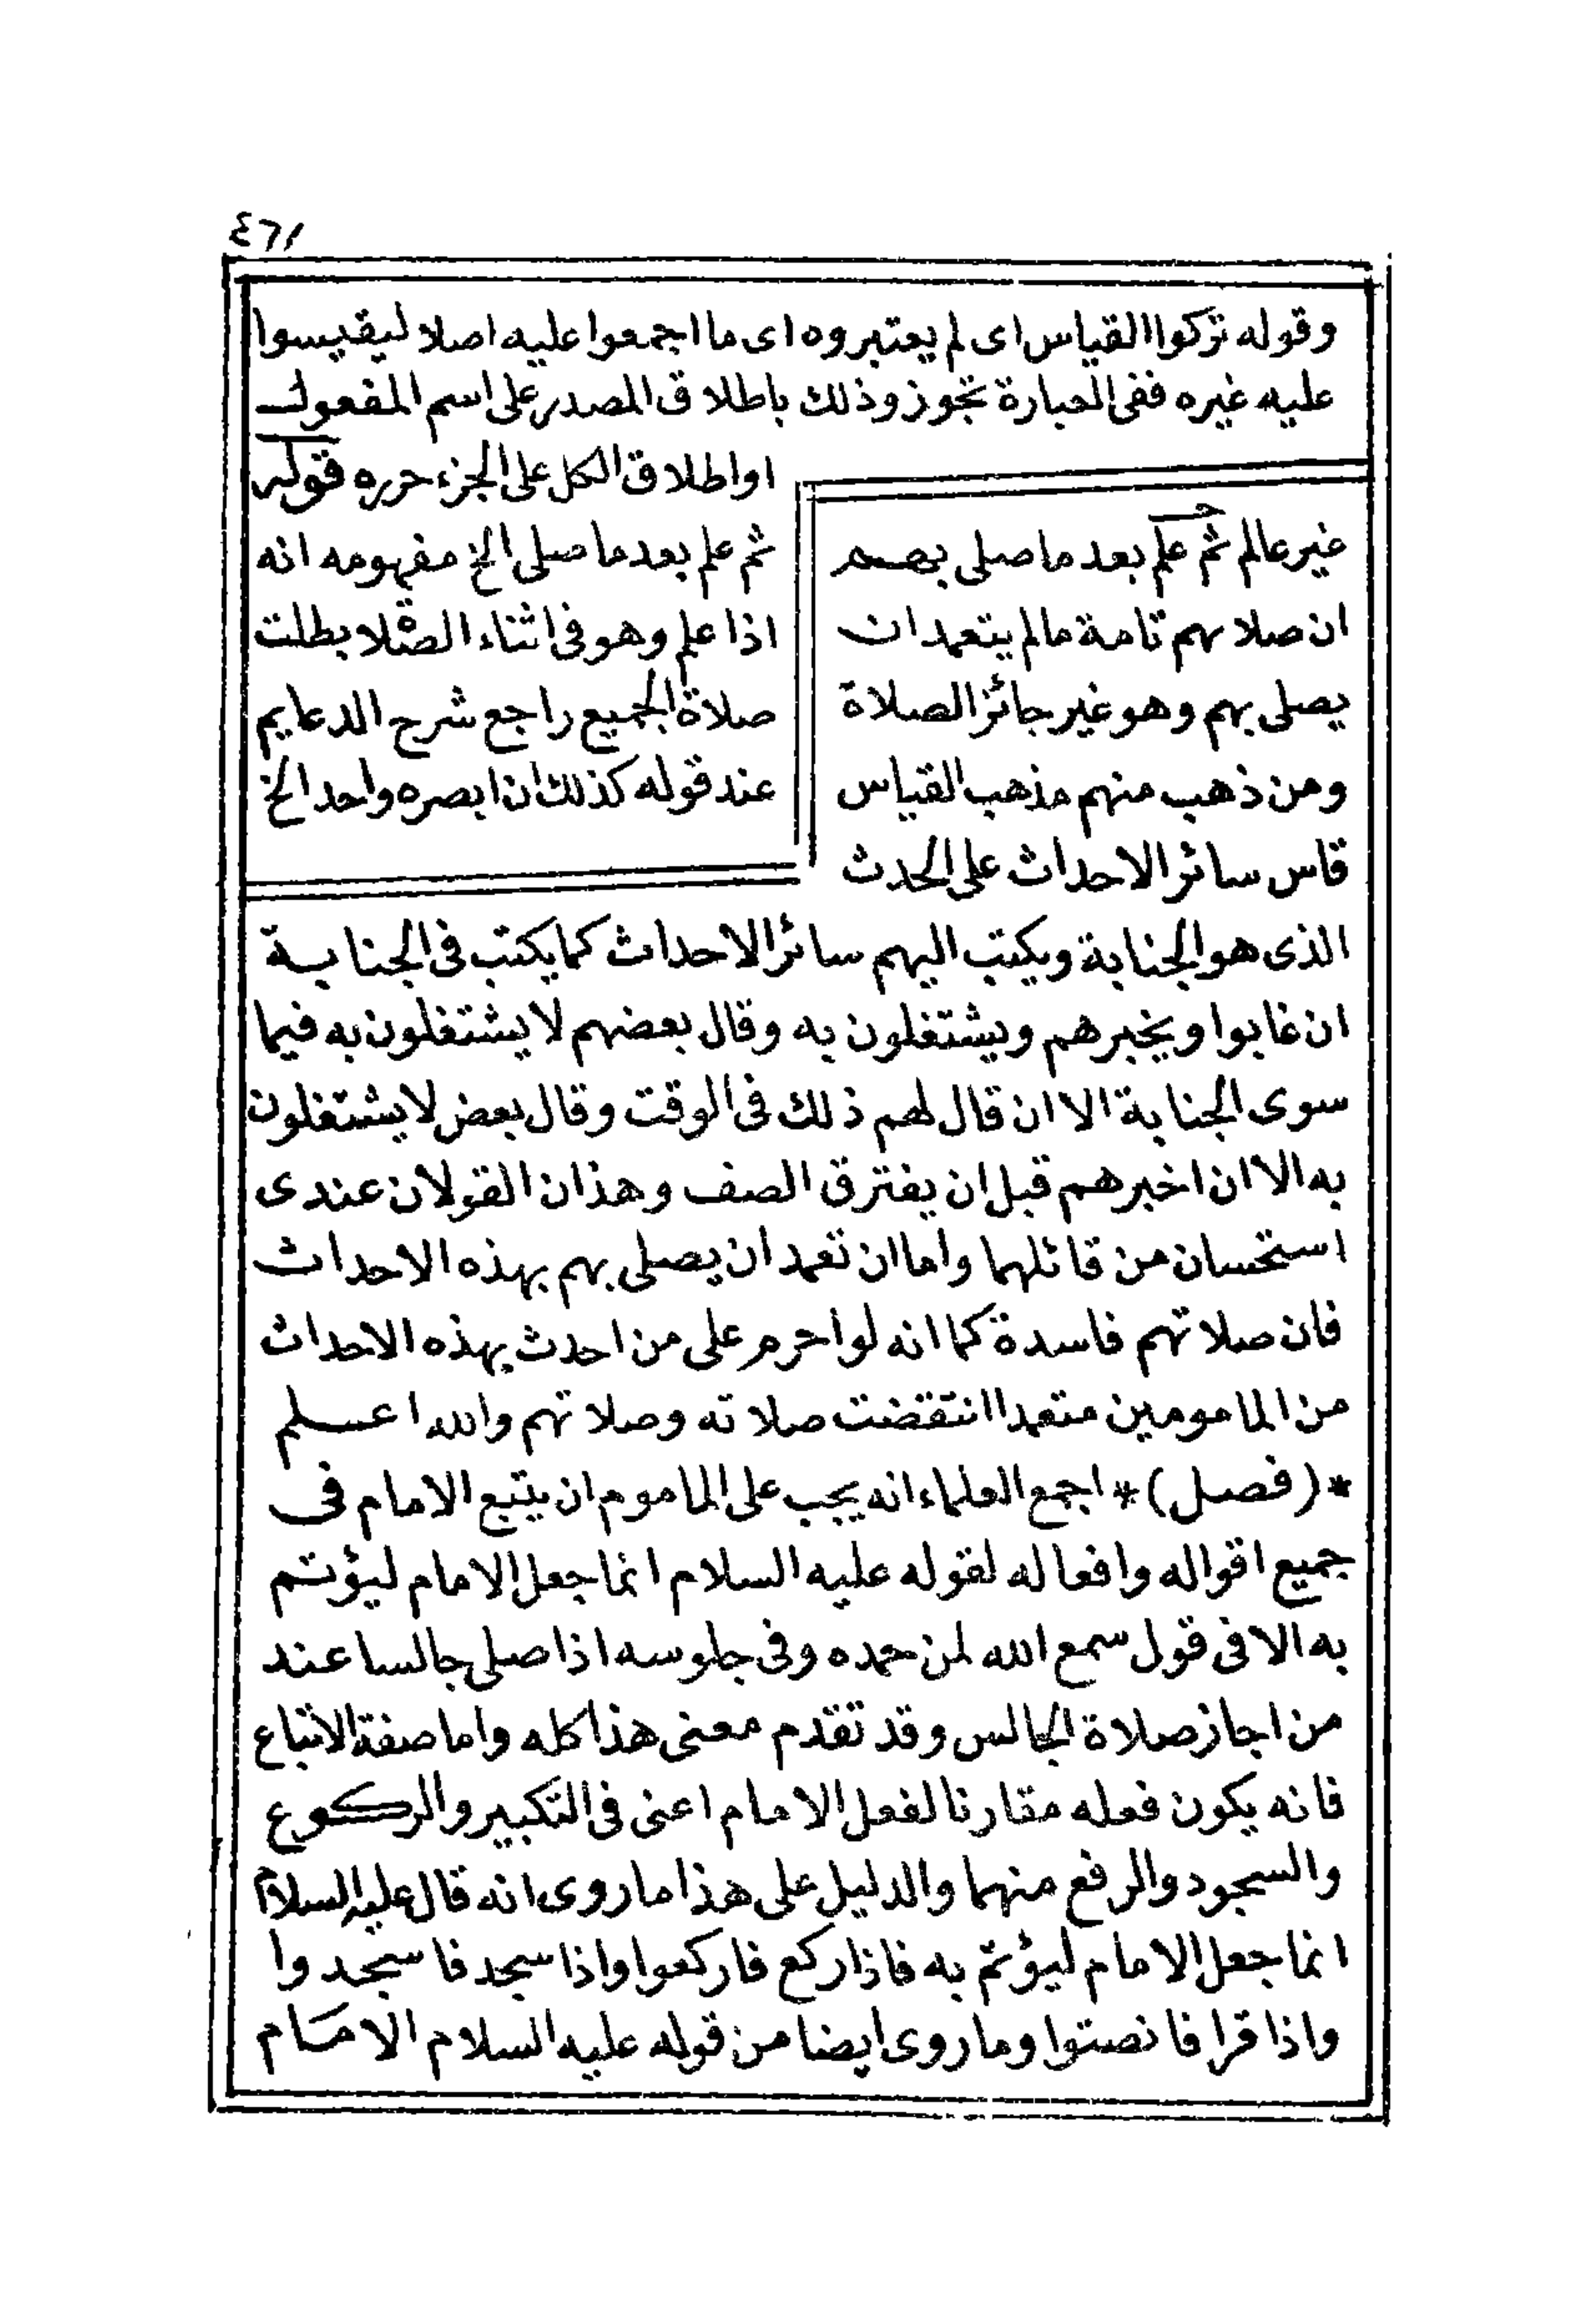 ٤٦١
وقوله تركوا القياس اى لم يعتبروه اى ما اجمعوا عليه اصلا ليقيسوا
عليه غيره ففى العبارة تجوز وذلك باطلاق المصدر على اسم المفعول
او اطلاق الكل على الجزء حرره قوله
ثم علم بعد ما صلى الخ مفهومه انه
اذا علم وهو فى اثناء الصلاة بطلت
صلاة الجميع راجع شرح الدعايم
عند قوله كذلك ان ابصره واحد الخ
غير عالم ثم علم بعد ما صلى بهم
ان صلاتهم تامة مالم يتعمد ان
يصلى بهم وهو غير جائز الصلاة
ومن ذهب منهم مذهب القياس
قاس سائر الاحداث على الحدث
الذى هو الجنابة ويكتب اليهم سائر الاحداث كما يكتب فى الجنابة
ان غابوا ويخبرهم ويشتغلون به وقال بعضهم لا يشتغلون به فيما
سوى الجنابة الا ان قال لهم ذلك فى الوقت وقال بعض لا يشتغلون
به الا ان اخبرهم قبل ان يفترق الصف وهذان القولان عندى
استحسان من قائلهما واما ان تعمد ان يصلى بهم بهذه الاحداث
فان صلاتهم فاسدة كما انه لو احرم على من احدث بهذه الاحداث
من المامومين متعمدا انتقضت صلاته وصلاتهم والله اعلم
*(فصل)* اجمع العلماء انه يجب على الماموم ان يتبع الامام فى
جميع اقواله وافعاله لقوله عليه السلام انما جعل الامام ليؤتم
به الا فى قول سمع الله لمن حمده وفى جلوسه اذا صلى جالسا عند
من اجاز صلاة الجالس وقد تقدم معنى هذا كله واما صفة الاتباع
فانه يكون فعله مقارنا لفعل الامام اعنى فى التكبير والركوع
والسجود والرفع منهما والدليل على هذا ما روى انه قال عليه السلام
انما جعل الامام ليؤتم به فاذا ركع فاركعوا واذا سجد فاسجدوا
واذا قرا فانصتوا وما روى ايضا من قوله عليه السلام الامام